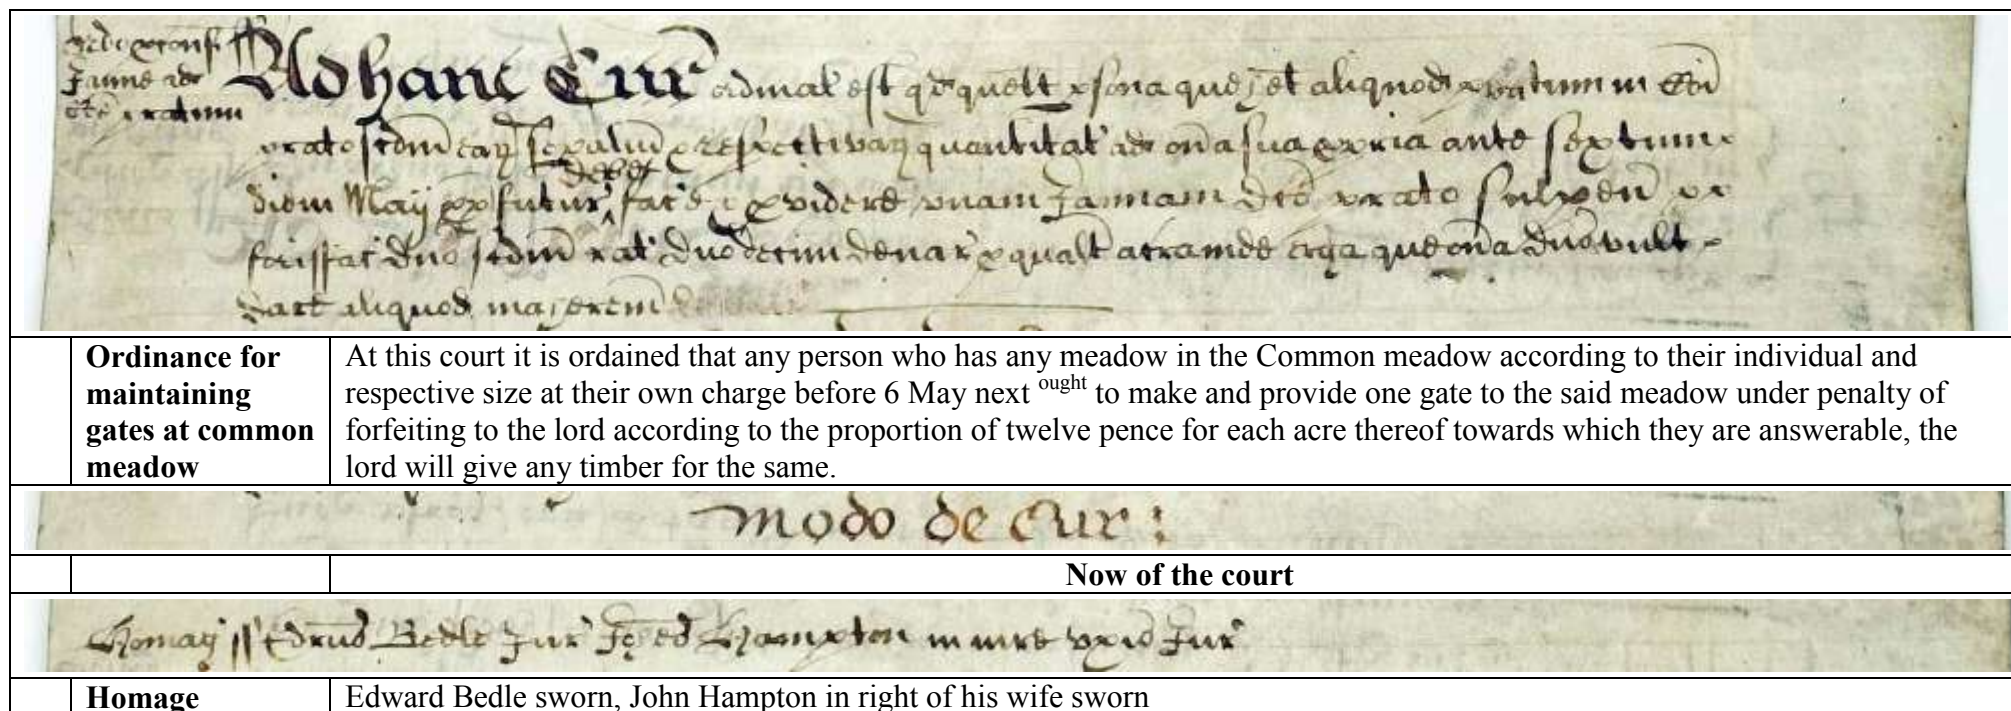 Ad hanc Cur ordinat est qd quelt psona que het aliquod pratum in Coi
prato scdm eaȝ sepalm & respectivaȝ quantitat ad oña sua ppria ante sextum
debet
diem Maij px futur facē & pvidere unam Januam dco prato sub pen
forisfac dno scdm rat duodecim denar p qualt acra inde erga que oña dns vult
dare aliquod maherem
Ordinance for
maintaining
gates at common
meadow
At this court it is ordained that any person who has any meadow in the Common meadow according to their individual and
respective size at their own charge before 6 May next ought to make and provide one gate to the said meadow under penalty of
forfeiting to the lord according to the proportion of twelve pence for each acre thereof towards which they are answerable, the
lord will give any timber for the same.
Modo de Cur :
Now of the court
Homag Edrud Bedle Jur Johes Hampton in iure uxis Jur
Homage
Edward Bedle sworn, John Hampton in right of his wife sworn